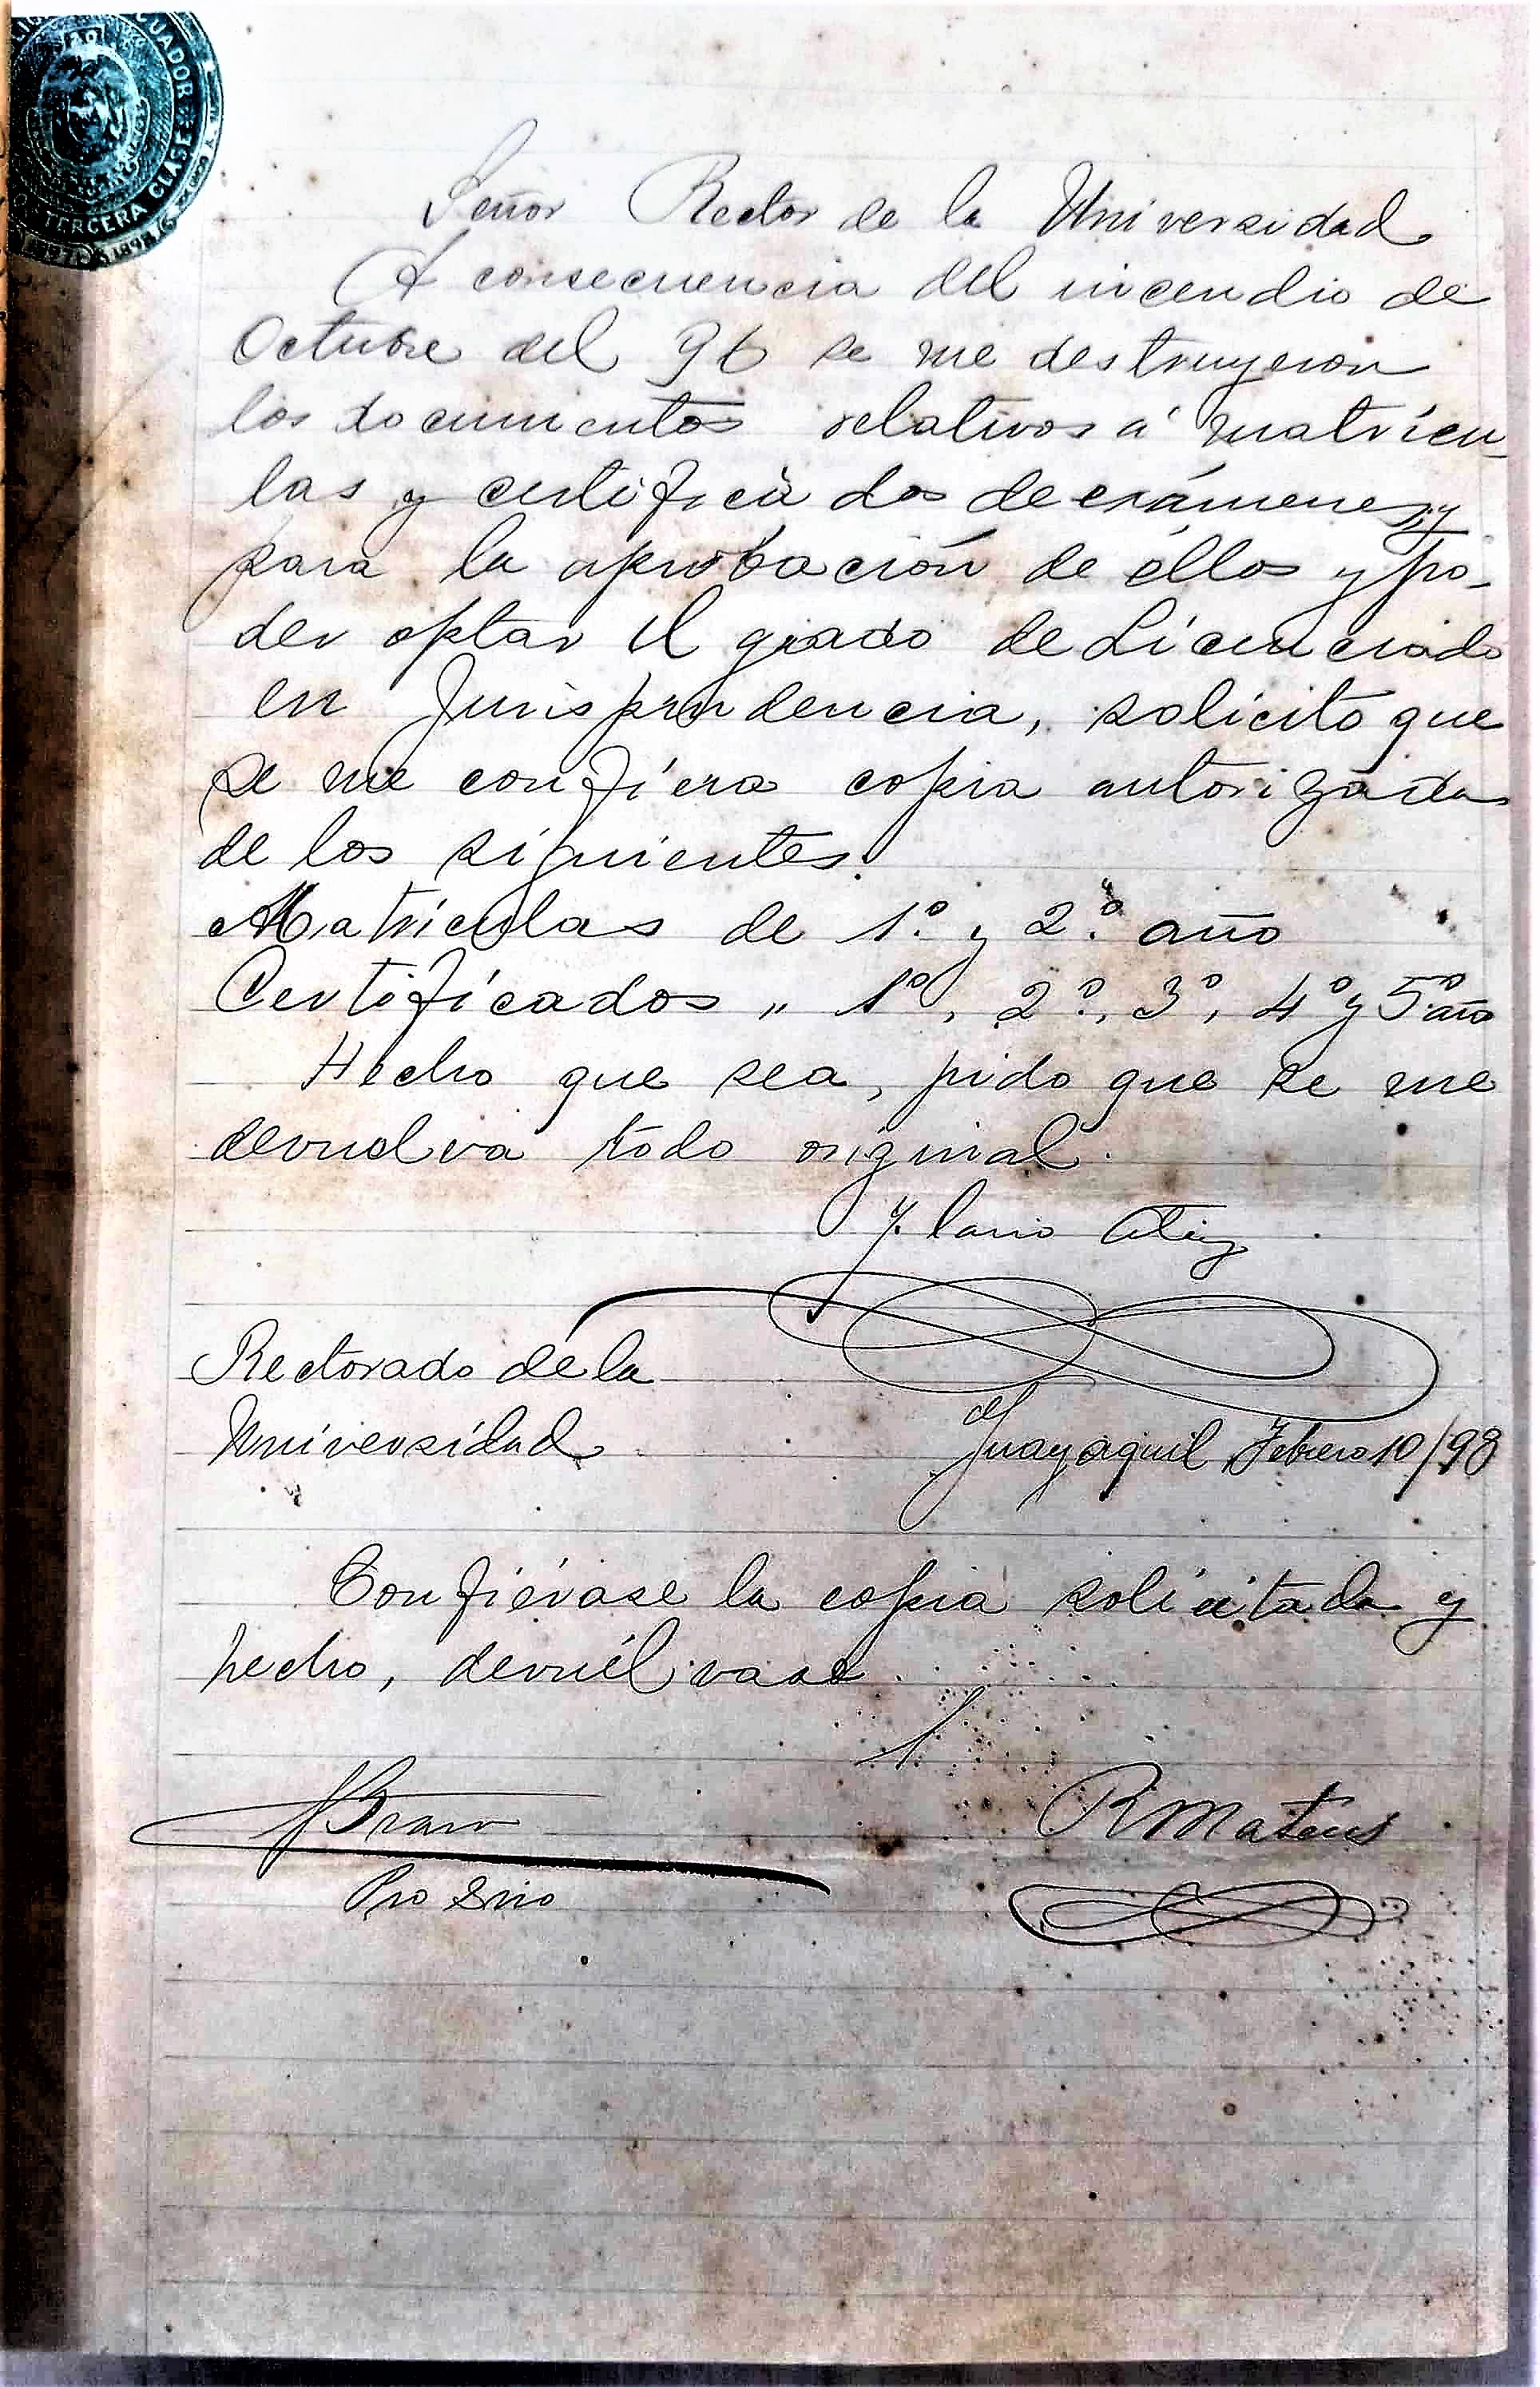 ECUADOR
TERCERA CLASE
1897 1898
Señor Rector de la Universidad
A consecuencia del incendio de
Octubre del 96 se me destruyeron
los documentos relativos á matrícu-
las y certificados de exámenes, y
para la aprobación de éllos y po-
der optar el grado de Licenciado
en Jurisprudencia, solicito que
se me confiera copia autorizada
de los siguientes:
Matriculas de 1.º y 2.º año
Certificados " 1º, 2º, 3º, 4º y 5º año
Hecho que sea, pido que se me
devuelva todo original.
Rectorado de la
Universidad
Guayaquil, Febrero 10/98
Confiérase la copia solicitada y
hecho, devuélvase.
Bravo
R Mateus
Pro Srio